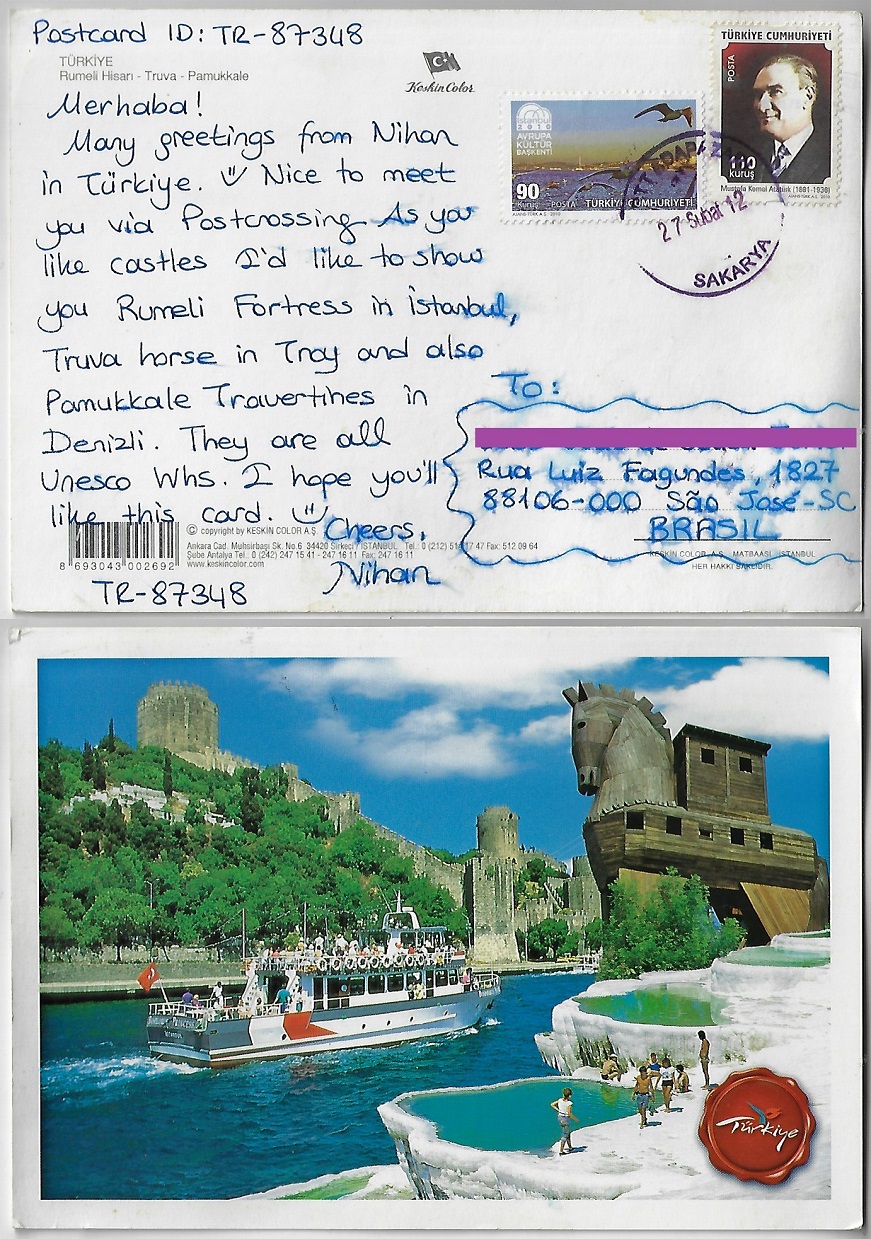 Postcard ID: TR-87348
TÜRKİYE
Rumeli Hisarı - Truva - Pamukkale
Keskin Color
Merhaba!
Many greetings from Nihan
in Türkiye. Nice to meet
you via Postcrossing. As you
like castles I'd like to show
you Rumeli Fortress in İstanbul,
Truva horse in Troy and also
Pamukkale Travertines in
Denizli. They are all
Unesco Whs. I hope you'll
like this card.
Cheers,
Nihan
TR-87348
istanbul
2010
AVRUPA
KÜLTÜR
BAŞKENTİ
90
Kuruş
POSTA
TÜRKİYE CUMHURİYETİ
AJANS-TÜRK A.Ş. 2010
TÜRKİYE CUMHURİYETİ
POSTA
110
kuruş
Mustafa Kemal Atatürk (1881-1938)
AJANS-TÜRK A.Ş. 2010
27 Subat 12
SAKARYA
To:
Rua Luiz Fagundes, 1827
88106-000 São José-SC
BRASIL
8 693043 002692
© copyright by KESKIN COLOR A.Ş.
Ankara Cad. Muhsirbaşi Sk. No.6 34420 Sirkeci / İSTANBUL Tel.: 0 (212) 514 17 47 Fax: 512 09 64
Şube Antalya Tel.: 0 (242) 247 15 41 - 247 16 11 Fax: 247 16 11
www.keskincolor.com
KESKİN COLOR A.Ş. MATBAASI - İSTANBUL
HER HAKKI SAKLIDIR.
Türkiye